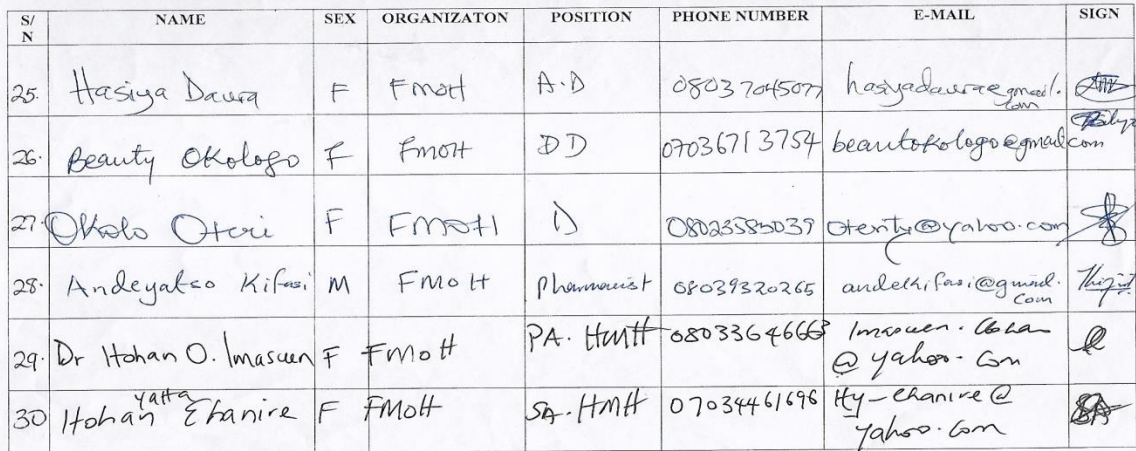 S/N NAME SEX ORGANIZATON POSITION PHONE NUMBER E-MAIL SIGN
25. Hasiya Daura F FMOH A.D 08037045077 hasiyadaura@gmail.com
26. Beauty Okologo F FMOH DD 07036713754 beautokologo@gmail.com
27. Okolo Oteri F FMOH D 08023585039 oterity@yahoo.com
28. Andeyatso Kifasi M FMOH Pharmacist 08039320265 andekifasi@gmail.com
29. Dr Itohan O. Imasuen F FMOH PA. HMH 08033646663 Imasuen.itohan@yahoo.com
30 Itohan Yatta Ehanire F FMOH SA. HMH 07034461696 Hy-ehanire@yahoo.com